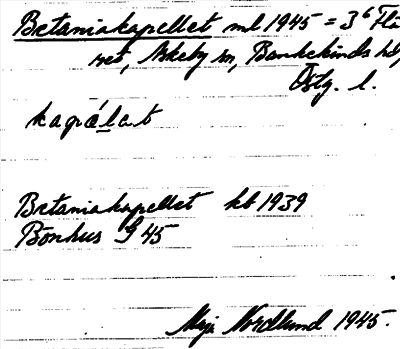 Betaniakapellet ml 1945 = 3⁶ Flä
ret, Askeby sn, Bankekinds hd,
Östg. l.
kapälat
Betaniakapellet kb 1939
Bönhus G 45
Maja Nordlund 1945.